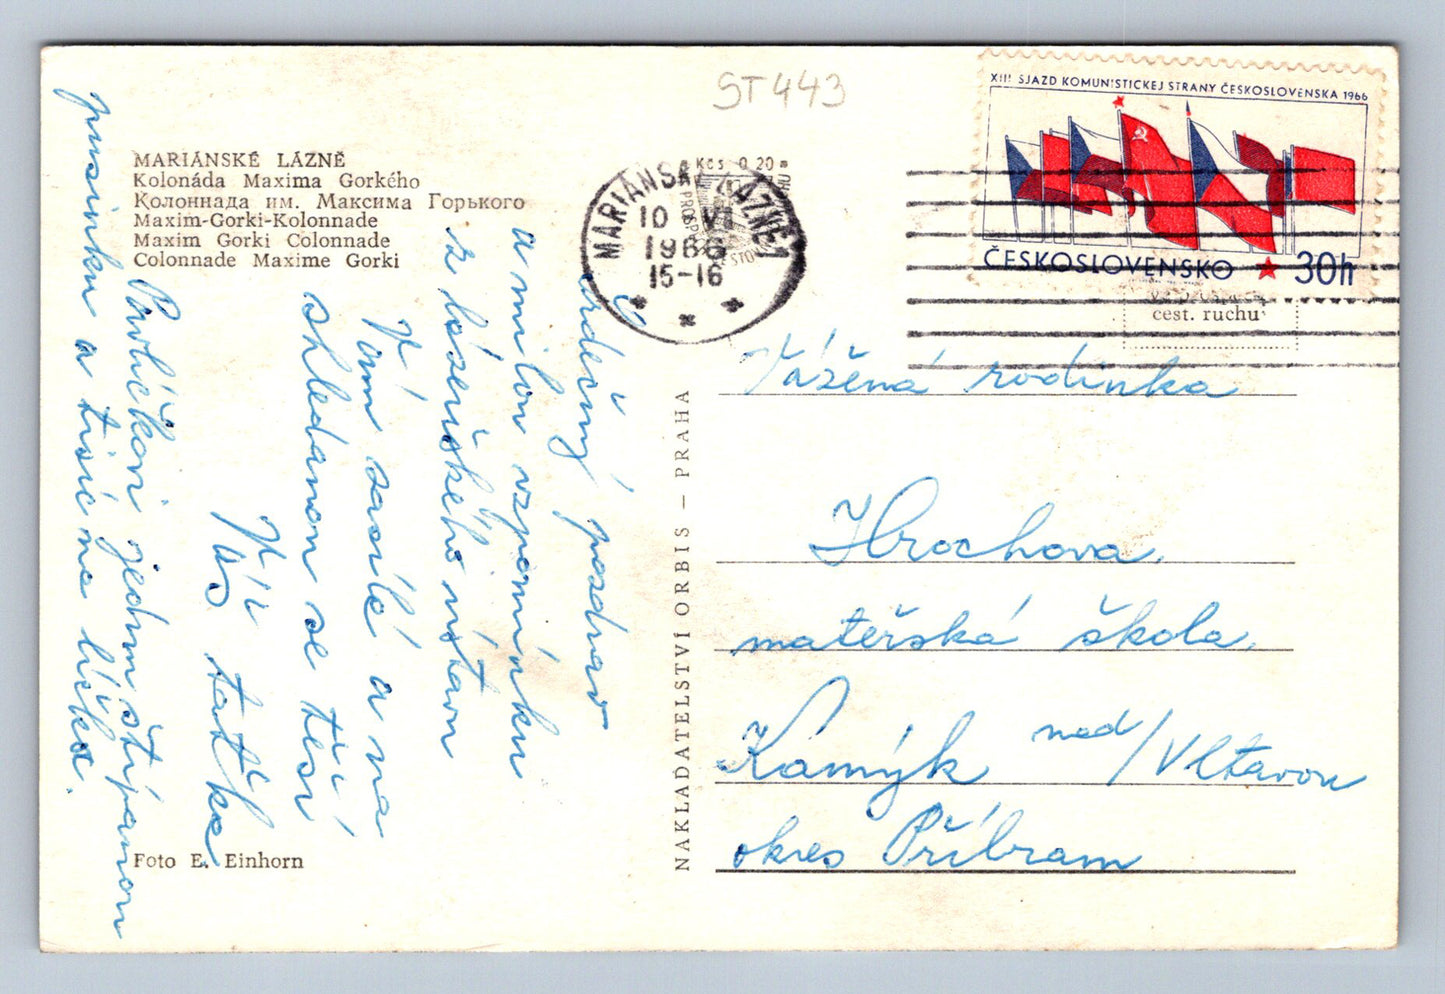 ST443
XIII SJAZD KOMUNISTICKEJ STRANY ČESKOSLOVENSKA 1966
ČESKOSLOVENSKO 30h
MARIÁNSKÉ LÁZNĚ
Kolonáda Maxima Gorkého
Колоннада им. Максима Горького
Maxim-Gorki-Kolonnade
Maxim Gorki Colonnade
Colonnade Maxime Gorki
Kčs 0,20
MARIÁNSKÉ LÁZNĚ 1
10 VI
1966
15-16
cest. ruchu
Srdečný pozdrav
a milou vzpomínku
z lázeňského ústavu
V.
Vám zasílá a na
shledanou se těší
Váš taťka
Pavlíčkovi jednu štípanou
pusinku a tisíc na líčka.
NAKLADATELSTVÍ ORBIS – PRAHA
Vážená rodinka
Hrochova,
mateřská škola,
Kamýk nad/Vltavou
okres Příbram
Foto E. Einhorn